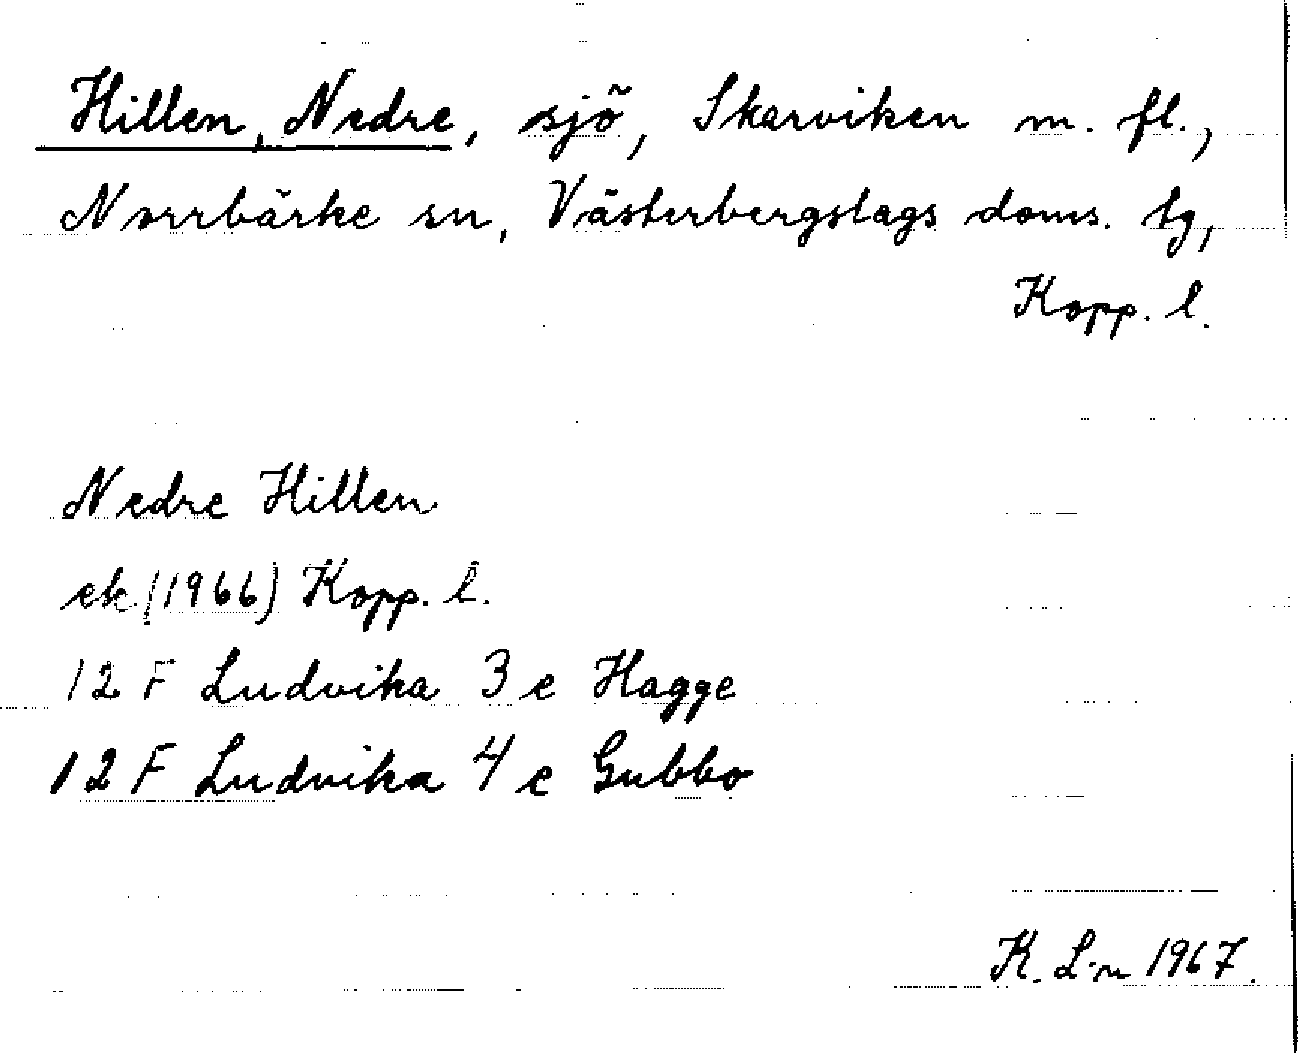 Hillen, Nedre, sjö, Skarviken m. fl.,
Norrbärke sn, Västerbergslags doms. tg,
Kopp. l.
Nedre Hillen
ek. (1966) Kopp. l.
12 F Ludvika 3 e Hagge
12 F Ludvika 4 e Gubbo
K. L-n 1967.